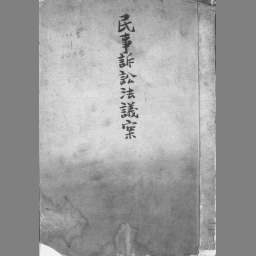 民事訴訟法議案